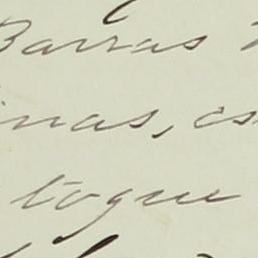 Barras
inas, es
togue